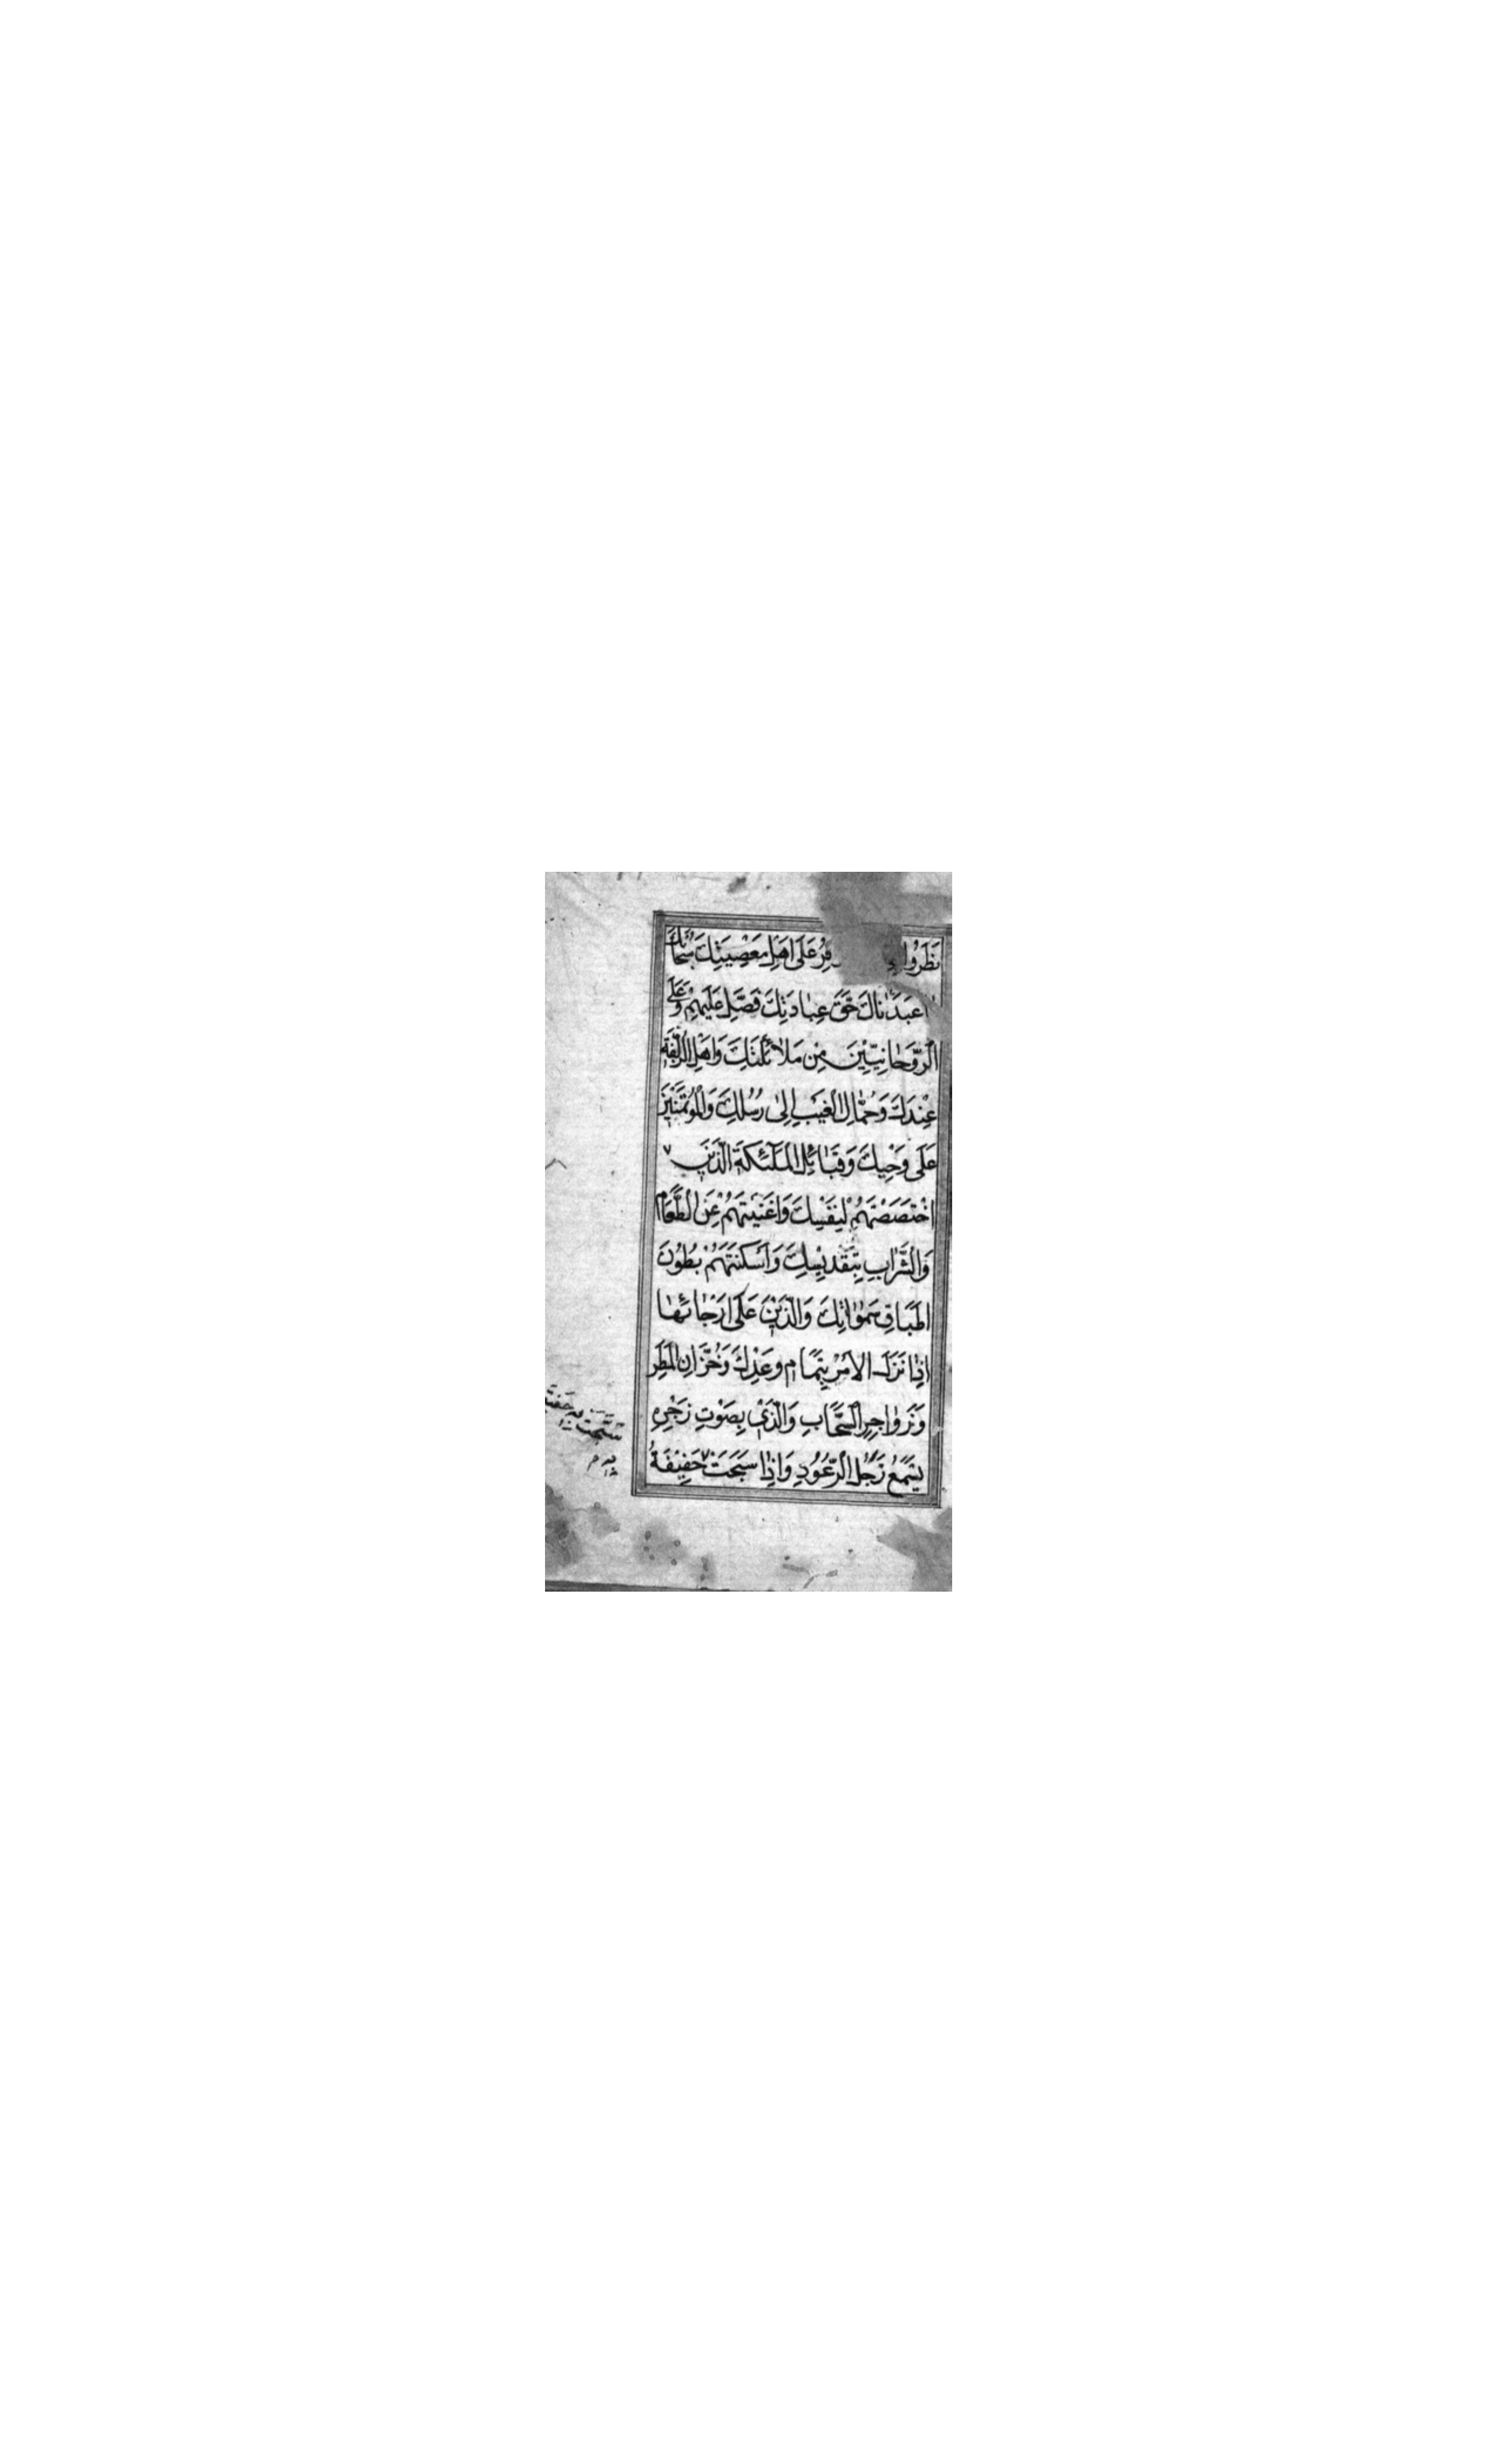 نَظَرُوا فِرُ عَلَى اَهْلِ مَعْصِيَتِكَ سُبْحَانَكَ
عَبَدْنَاكَ حَقَّ عِبَادَتِكَ فَصَلِّ عَلَيْهِمْ وَعَلَى
الرَّوْحَانِيِّيْنَ مِنْ مَلَائِكَتِكَ وَاَهْلِ الزُّلْفَةِ
عِنْدَكَ وَحُمَّالِ الْغَيْبِ اِلٰى رُسُلِكَ وَالْمُؤْتَمَنِيْنَ
عَلٰى وَحْيِكَ وَقَبَائِلِ الْمَلٰٓئِكَةِ الَّذِيْنَ
اخْتَصَصْتَهُمْ لِنَفْسِكَ وَاَغْنَيْتَهُمْ عَنِ الطَّعَامِ
وَالشَّرَابِ بِتَقْدِيْسِكَ وَاَسْكَنْتَهُمْ بُطُوْنَ
اَطْبَاقِ سَمٰوَاتِكَ وَالَّذِيْنَ عَلٰى اَرْجَائِهَا
اِذَا نَزَلَ الْاَمْرُ بِتَمَامِ وَعْدِكَ وَخُزَّانِ الْمَطَرِ
وَزَوَاجِرِ السَّحَابِ وَالَّذِيْ بِصَوْتِ زَجْرِهِ
يُسْمَعُ زَجَلُ الرُّعُوْدِ وَاِذَا سَبَحَتْ حَفِيْفَةُ